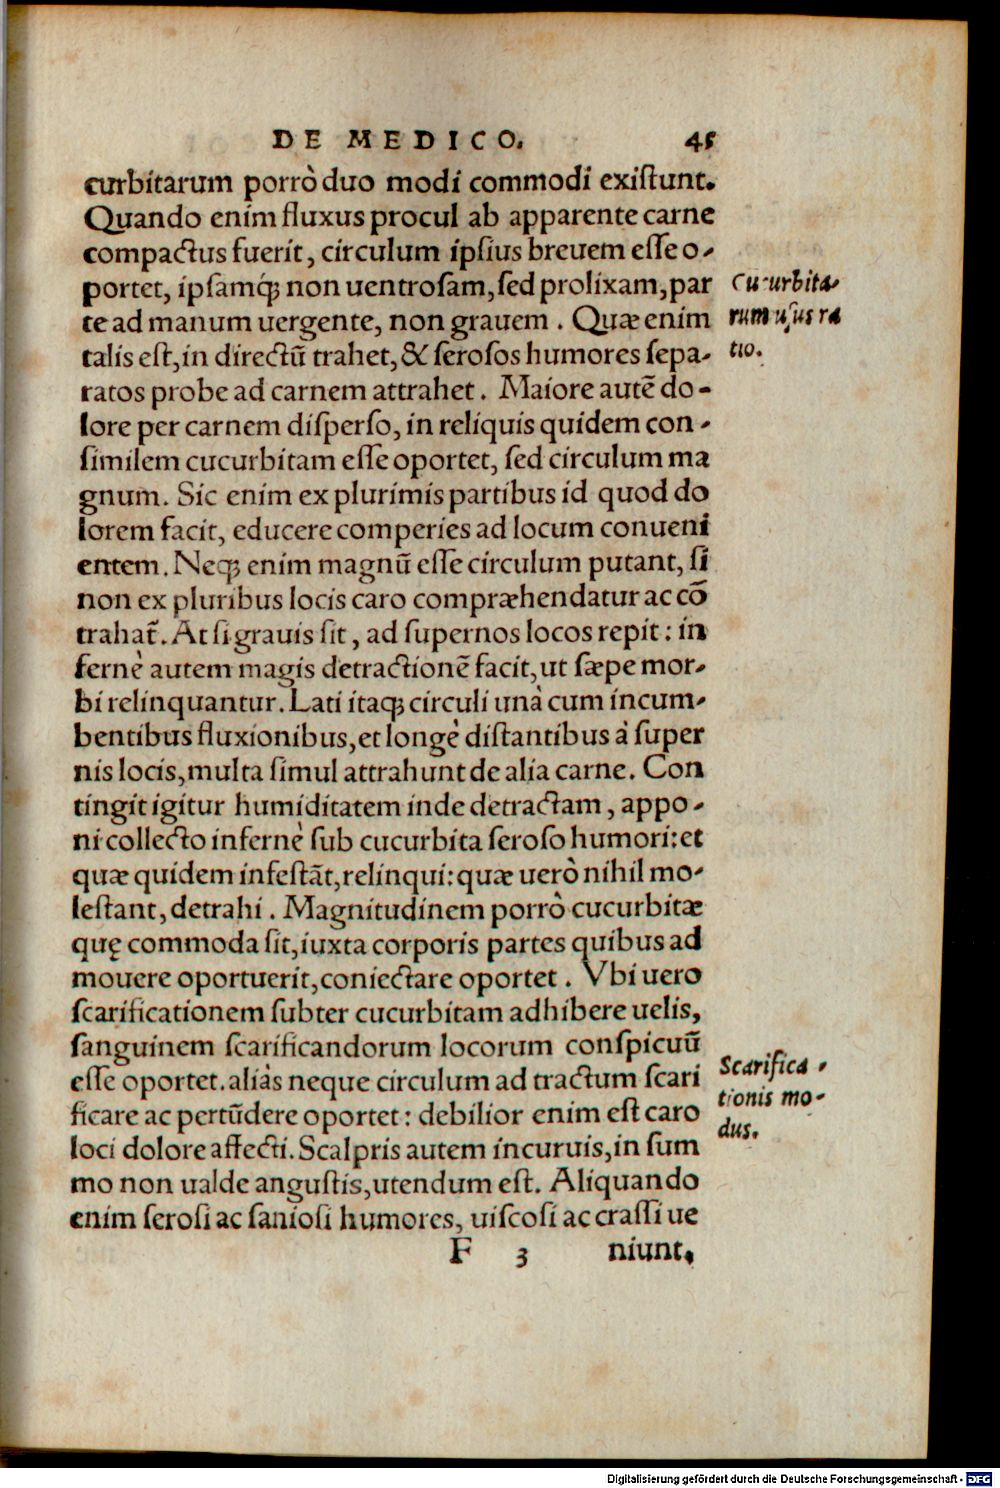 DE MEDICO. 45
curbitarum porrò duo modi commodi exiſtunt.
Quando enim fluxus procul ab apparente carne
compactus fuerit, circulum ipſius breuem eſſe o-
portet, ipſamq́; non uentroſam, ſed prolixam, par
te ad manum uergente, non grauem. Quæ enim
talis eſt, in directū trahet, & ſeroſos humores ſepa-
ratos probe ad carnem attrahet. Maiore autē do-
lore per carnem diſperſo, in reliquis quidem con-
ſimilem cucurbitam eſſe oportet, ſed circulum ma
gnum. Sic enim ex plurimis partibus id quod do
lorem facit, educere comperies ad locum conueni
entem. Neq; enim magnū eſſe circulum putant, ſi
non ex pluribus locis caro compræhendatur ac cō
trahat̃. At ſi grauis ſit, ad ſupernos locos repit: in
fernè autem magis detractionē facit, ut ſæpe mor-
bi relinquantur. Lati itaq; circuli unà cum incum-
bentibus fluxionibus, et longè diſtantibus à ſuper
nis locis, multa ſimul attrahunt de alia carne. Con
tingit igitur humiditatem inde detractam, appo-
ni collecto infernè ſub cucurbita ſeroſo humori: et
quæ quidem infeſtāt, relinqui: quæ uerò nihil mo-
leſtant, detrahi. Magnitudinem porrò cucurbitæ
quę commoda ſit, iuxta corporis partes quibus ad
mouere oportuerit, coniectare oportet. Vbi uero
ſcarificationem ſubter cucurbitam adhibere uelis,
ſanguinem ſcarificandorum locorum conſpicuū
eſſe oportet. aliàs neque circulum ad tractum ſcari
ficare ac pertūdere oportet: debilior enim eſt caro
loci dolore affecti. Scalpris autem incuruis, in ſum
mo non ualde anguſtis, utendum eſt. Aliquando
enim ſeroſi ac ſanioſi humores, uiſcoſi ac craſſi ue
F 3 niunt.
Cucurbita-
rum uſus ra
tio.
Scarifica-
tionis mo-
dus.
Digitalisierung gefördert durch die Deutsche Forschungsgemeinschaft - DFG